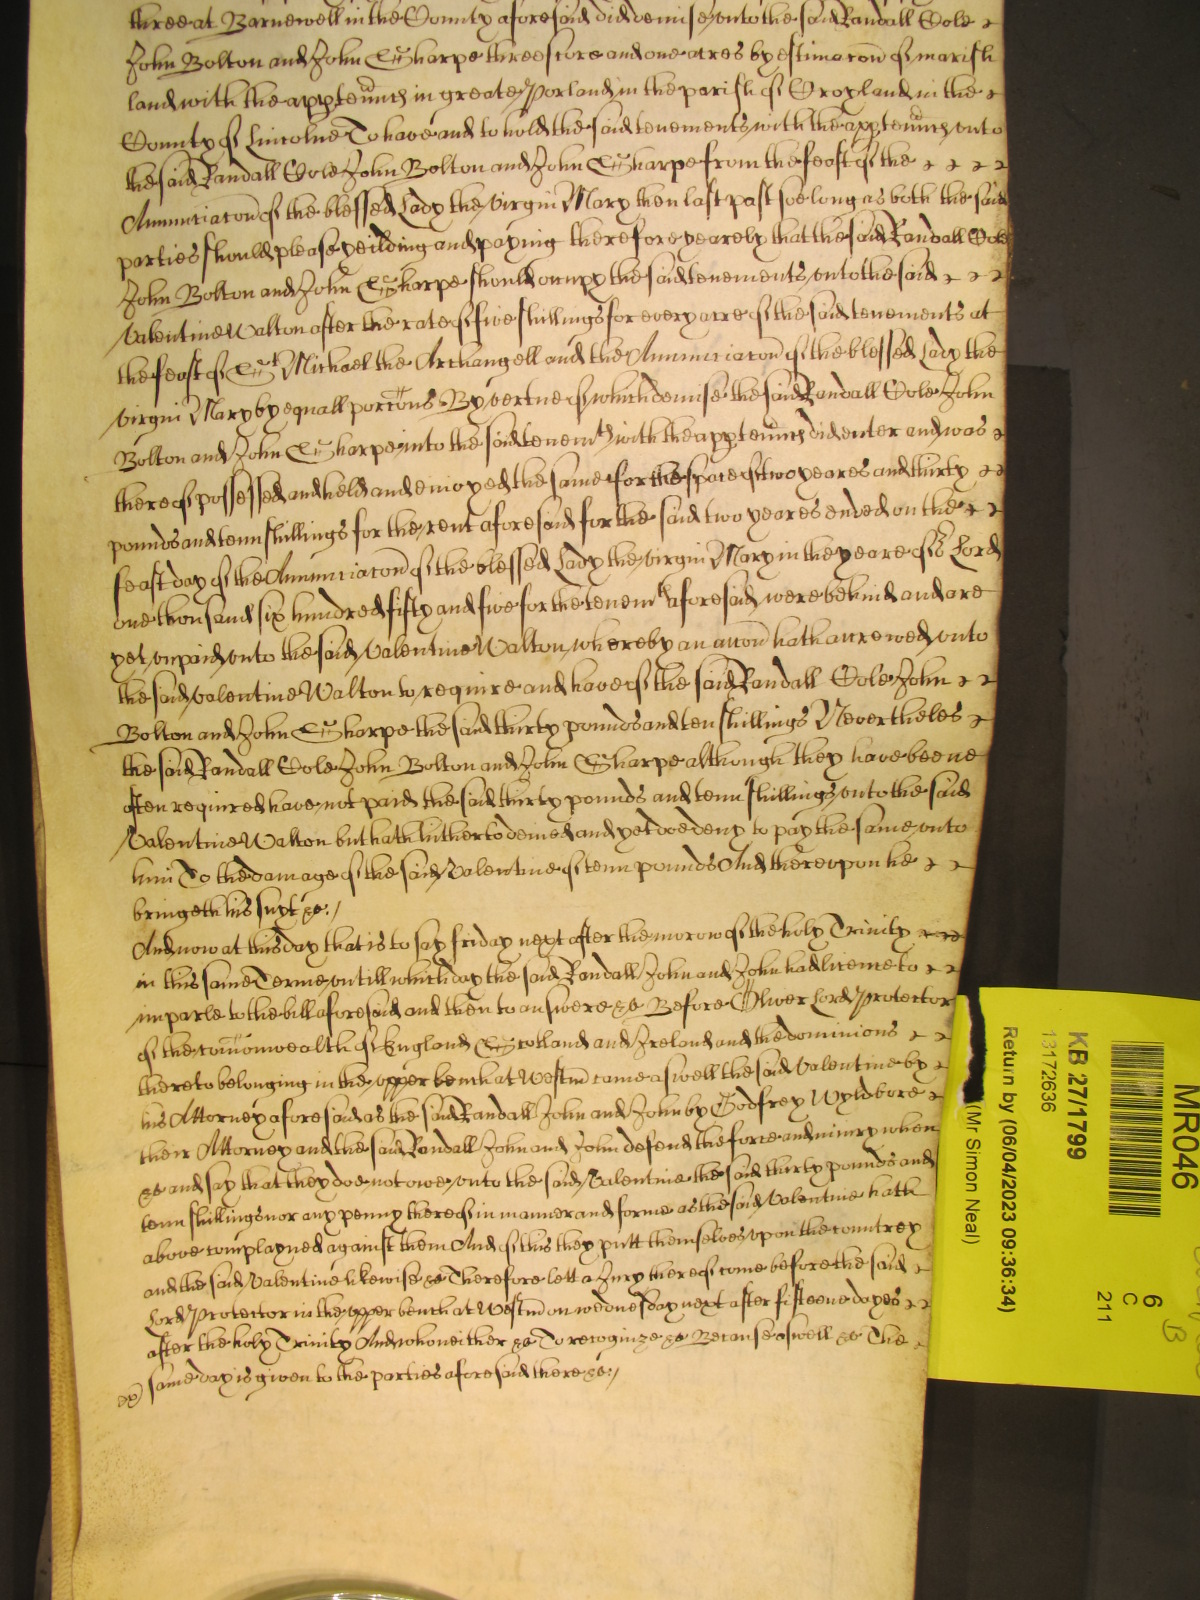 three at Barnewell in the County aforesaid did demise unto the said Randall Cole
John Bolton and John Sharpe three score and one acres by estimacon of marish
land with the apptenncs in greate Porland in the parish of Croyland in the
County of Lincolne To have and to hold the said tenements with the apptenncs unto
the said Randall Cole John Bolton and John Sharpe from the feast of the
Annunciacon of the blessed Lady the virgin Mary then last past soe long as both the said
parties should please yeilding and paying therefore yearely that the said Randall Cole
John Bolton and John Sharpe should occupy the said tenements unto the said
Valentine Walton after the rate of five shillings for every acre of the said tenements at
the feast of St Michael the Archangell and the Annunciacon of the blessed Lady the
virgin Mary by equall porcons By vertue of which demise the said Randall Cole John
Bolton and John Sharpe into the said tenemts with the apptenncs did enter and was
thereof possessed and held and enioyed the same for the space of two yeares and thirty
pounds and tenn shillings for the rent aforesaid for the said two yeares ended on the
feast day of the Annunciacon of the blessed Lady the virgin Mary in the yeare of or Lord
one thousand six hundred fifty and five for the tenemts aforesaid were behind and are
yet unpaid unto the said Valentine Walton whereby an accon hath accrewed unto
the said Valentine Walton to require and have of the said Randall Cole John
Bolton and John Sharpe the said thirty pounds and ten shillings Nevertheles
the said Randall Cole John Bolton and John Sharpe although they have beene
often required have not paid the said thirty pounds and tenn shillings unto the said
Valentine Walton but hath hitherto denied and yet doe deny to pay the same unto
him To the damage of the said Valentine of tenn pounds And thereupon he
bringeth his suyt &c:/
And now at this day that is to say friday next after the morow of the holy Trinity
in this same Terme untill which day the said Randall John and John had licence to
imparle to the bill aforesaid and then to answere &c Before Oliver Lord Protector
of the comonwealth of England Scotland and Ireland and the dominions
thereto belonging in the upper bench at Westm came aswell the said Valentine by
his Attorney aforesaid as the said Randall John and John by Godfrey Wyldbore
their Attorney and the said Randall John and John defend the force and iniury when
&c and say that they doe not owe unto the said Valentine the said thirty pounds and
tenn shillings nor any penny thereof in manner and forme as the said Valentine hath
above complayned against them And of this they putt themselves upon the countrey
and the said Valentine likewise &c Therefore lett a Jury thereof come before the said
Lord Protector in the upper bench at Westm on wednesday next after fifteene dayes
after the holy Trinity And who neither &c To recognize &c Because aswell &c The
same day is given to the parties aforesaid there &c:/
MR046
KB 27/1799
13172636
Return by (06/04/2023 09:36:34)
(Mr Simon Neal)
6
C
211
B